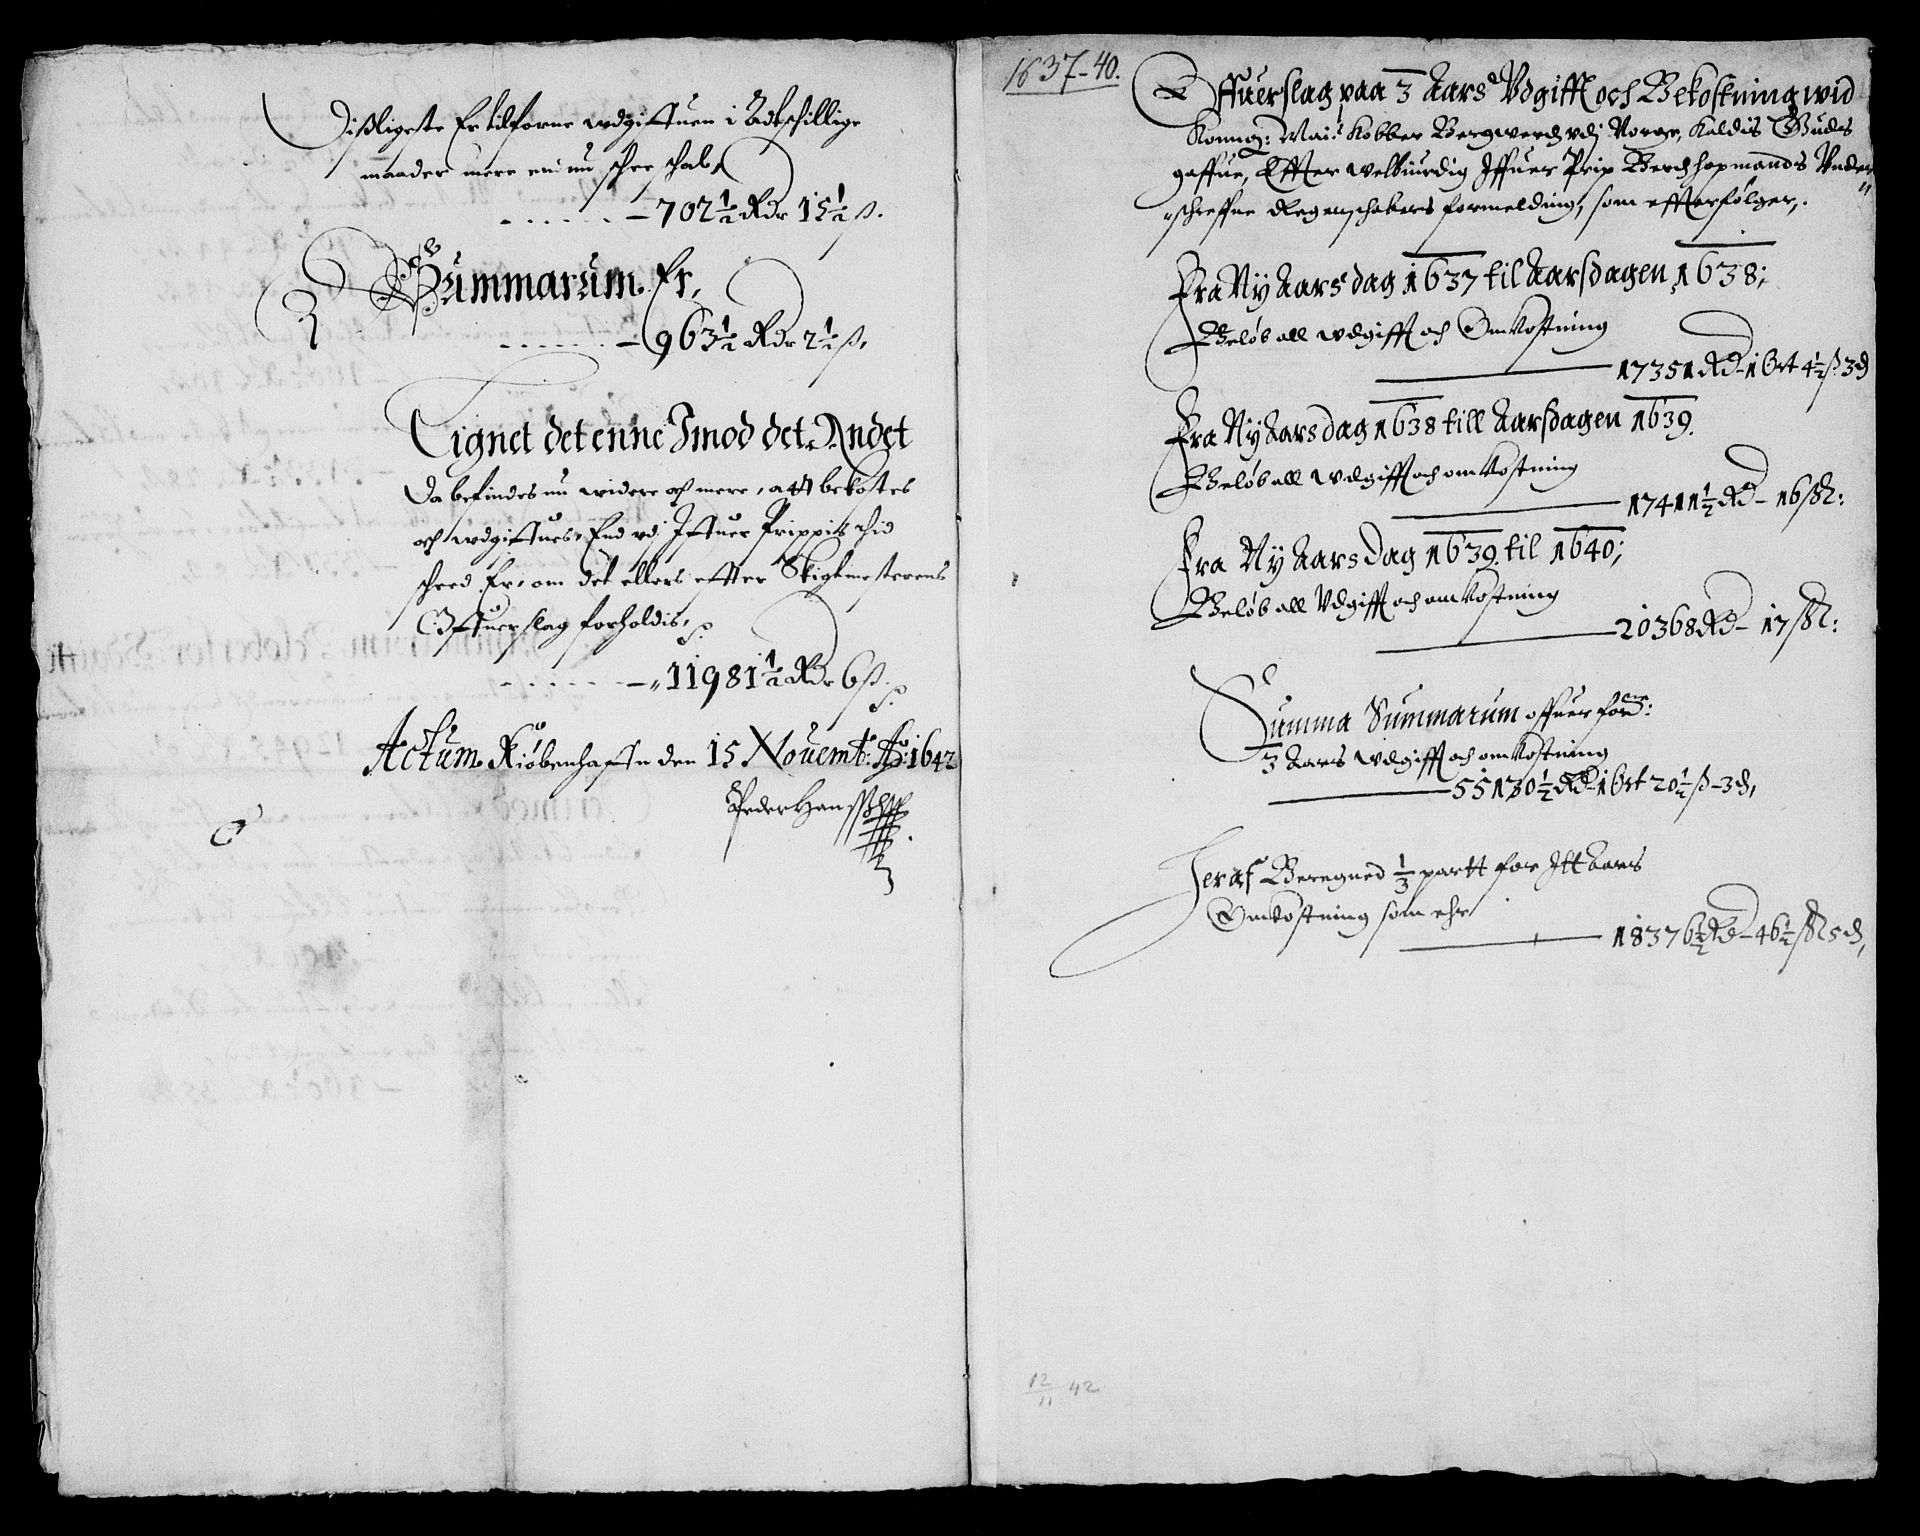 Dißligeste Er tilforne wdgifftuen i Adtschillige
maader mere end nu schee schal,
702½ Rdr 15½ ß.
Summarum Er,
963½ Rdr 2½ ß,
Lignet det enne Imod det Andet
Da befindes nu widere och mere, att bekostes
och wdgifftues, End wdj Iffuer Prippis thid
scheed Er, om det ellers effter Skigtmesterens
Offuerslag forholdis,
11981½ Rdr 6 ß.
Actum Kiöbenhaffn den 15 Nouemb: Ao: 1642
Peder Hanss
1637-40.
Offuerslag paa 3 Aars Vdgifft och Bekostning wid
Konng: Mais Kobber Bergwerch vdj Norge, Kaldis Guds
gaffue, Effter welbiurdig Iffuer Prip Berchhopmands Vnder
schreffne Regenschabers formelding, som effterfølger,.
Fra Ny Aarsdag 1637 til Aarsdagen 1638;
Beløb all wdgifft och Omkostning
17351 Rd - 1 Ort 4½ ß 3 d
Fra Ny Aarsdag 1638 till Aarsdagen 1639.
Beløb all wdgifft och omkostning
17411½ Rd - 16 ßl:
Fra Ny Aars Dag 1639. til 1640;
Beløb all Vdgifft och omkostning
20368 Rd - 17 ßl:
Summa Summarum offuer forne:
3 Aars wdgifft och omkostning
55130½ Rd - 1 Ort 20½ ß - 3 d,
Heraf Beregned 1/3 partt for Itt Aars
Omkostning som ehr
18376½ Rd - 46½ ßl 5 d,
12/11 42